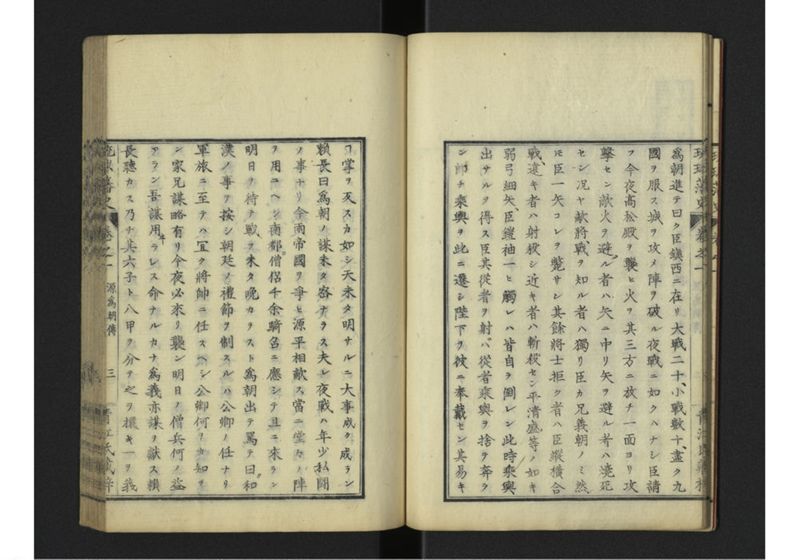 爲朝進テ曰ク臣鎮西ニ在リ大戰二十、小戰數十、盡ク九
國ヲ服ス城ヲ攻メ陣ヲ破ル夜戰ニ如クハナシ臣請
フ今夜高松殿ヲ襲ヒ火ヲ其三方ニ放チ一面ヨリ攻
擊セン敵火ヲ避ル者ハ矢ニ中リ矢ヲ避ル者ハ燒死
セン况ヤ敵將戰ヲ知ル者ハ獨リ臣カ兄義朝ノミ然
モ臣一矢コレヲ斃サン其餘將士拒ク者ハ臣縱橫合
戰、遠キ者ハ射殺シ近キ者ハ斬殺セン平清盛等ノ如キ
弱弓細矢臣鎧袖一ヒ觸レハ皆自ヲ倒レン此時乘輿
出サルヲ得ス臣其從者ヲ射ハ從者乘輿ヲ捨テ奔ラ
ン卽チ乘輿ヲ此ニ遷シ陛下ヲ彼ニ奉戴セン其易キ
コ掌ヲ反スカ如シ天未タ明サルニ大事成ク成ラン
賴長曰爲朝ノ謀未タ密ナラス夫レ夜戰ハ年少私鬪
ノ事ナリ今兩帝國ヲ爭ヒ源平相敵ス當ニ堂々ノ陣
ヲ用ニヘシ南都僧侶千余騎召ニ應シテ且ニ來ラン
明日ヲ待テ戰ヲ未タ晚カラスト爲朝出テ罵テ曰和
漢ノ事ヲ按シ朝廷ノ禮節ヲ制スルハ公卿ノ任ナリ
軍旅ニ至テハ宜ク將帥ニ任スヘシ公卿何ヲカ知ラ
ン家兄謀略有リ今夜必來リ襲ン明日ノ僧兵何ノ益
アラン吾謀用ヰラレス命ナルカナ爲義亦謀ヲ獻ス賴
長聽カス乃チ其六子ト八甲ヲ分テ之ヲ擐キ一ヲ我
琉球藩史 卷之一 源爲朝傳 三